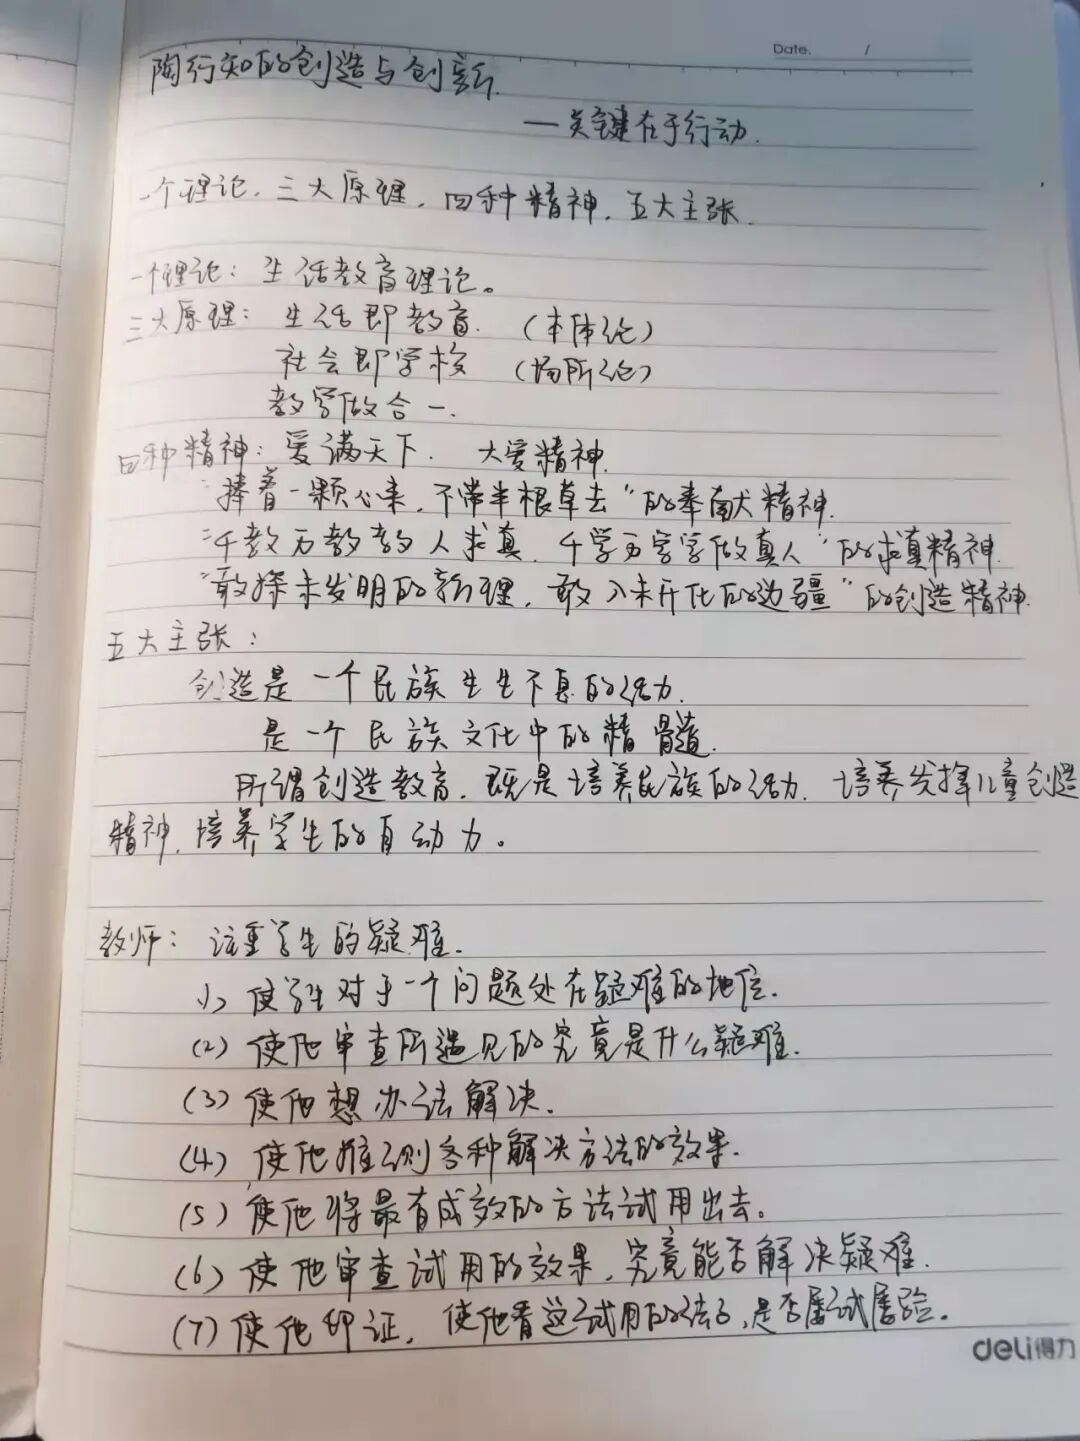 Date. /
陶行知的创造与创新
—关键在于行动.
一个理论.三大原理.四种精神.五大主张.
一个理论：生活教育理论。
三大原理：生活即教育.（本体论）
社会即学校（场所论）
教学做合一.
四种精神：爱满天下.大爱精神.
“捧着一颗心来，不带半根草去”的奉献精神.
“千教万教教人求真.千学万学学做真人”的求真精神.
“敢探未发明的新理，敢入未开化的边疆”的创造精神.
五大主张：
创造是一个民族生生不息的活力.
是一个民族文化中的精髓.
所谓创造教育.既是培养民族的活力.培养发挥儿童创造
精神.培养学生的自动力。
教师：注重学生的疑难.
(1)使学生对于一个问题处在疑难的地位.
(2)使他审查所遇见的究竟是什么疑难.
(3)使他想办法解决.
(4)使他推测各种解决方法的效果.
(5)使他将最有成效的方法试用出去。
(6)使他审查试用的效果，究竟能否解决疑难.
(7)使他印证，使他看这试用的法子，是否屡试屡验。
deli得力